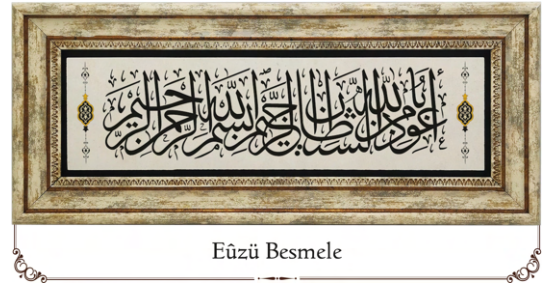 أعوذ بالله من الشيطان الرجيم بسم الله الرحمن الرحيم
Eûzü Besmele